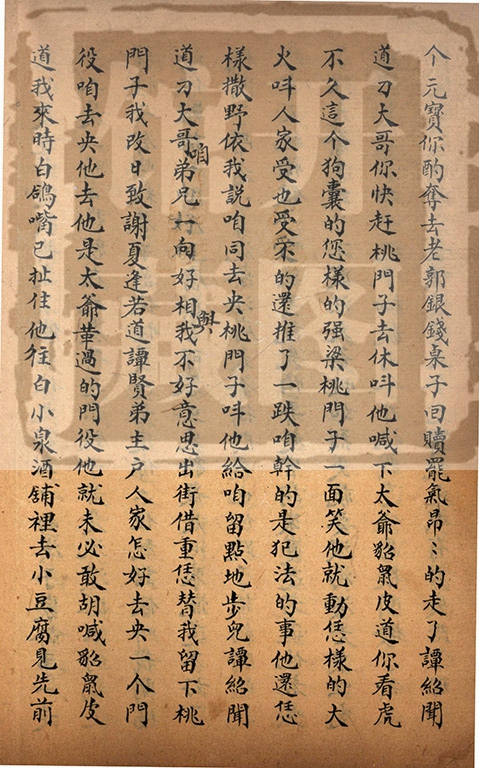 个元寶你酌奪去老郭銀錢桌子回贖罷氣昂〻的走了譚紹聞
道刁大哥你快赶桃門子去休呌他喊下大爺貂鼠皮道你看虎
不久這个狗囊的恁樣的强梁桃門子一面笑他就動恁樣的大
火呌人家受也受不的還推了一跌咱幹的是犯法的事他還恁
樣撒野依我説咱同去央桃門子呌他給咱留點地步兒譚紹聞
道刁大哥咱弟兄一向好相與我不好意思出街借重恁替我留下桃
門子我改日致謝夏逢若道譚賢弟主户人家怎好去央一个門
役咱去央他去他是太爺革過的門役他就未必敢胡喊貂鼠皮
道我來時白鴿嘴已扯住他往白小泉酒舖裡去小豆腐見先前